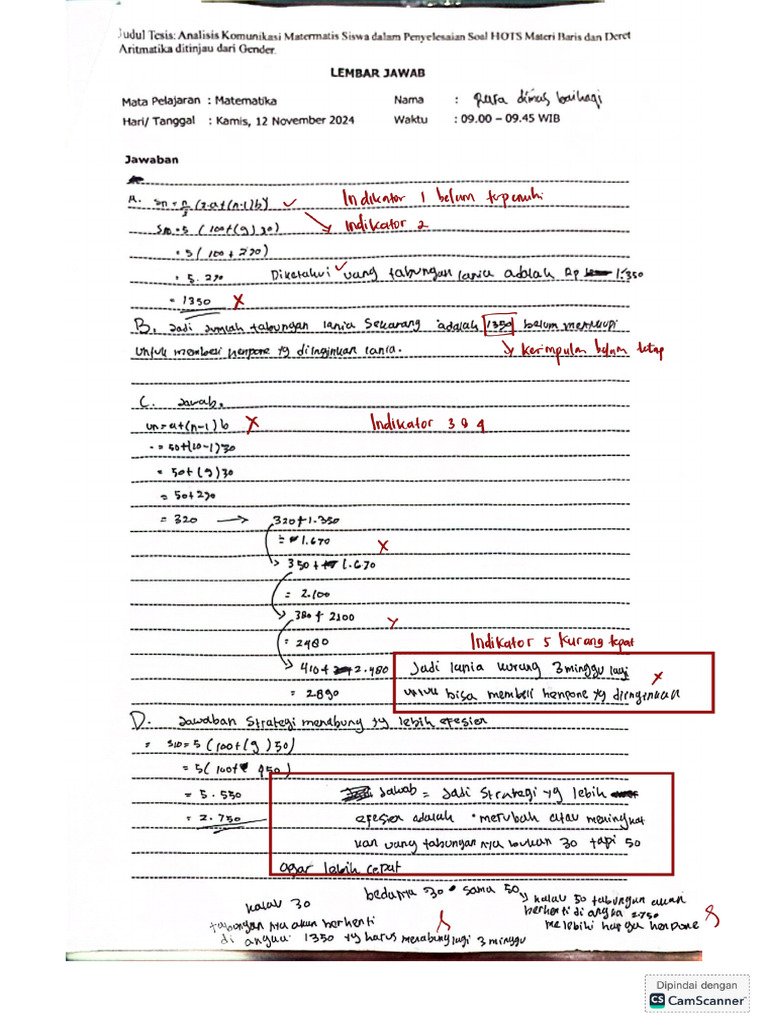 Judul Tesis: Analisis Komunikasi Matermatis Siswa dalam Penyelesaian Soal HOTS Materi Baris dan Deret
Aritmatika ditinjau dari Gender.
LEMBAR JAWAB
Mata Pelajaran : Matematika Nama : dimas baihaqi
Hari/ Tanggal : Kamis, 12 November 2024 Waktu : 09.00 – 09.45 WIB
Jawaban
A. Sn = n/2 (2.a + (n-1) b) ✓ Indikator 1 belum terpenuhi
S10 = 5 (100 + (9) 30) Indikator 2
= 5 (100 + 270)
= 5. 270 Diketahui ✓ uang tabungan lania adalah Rp 1.350
= 1350 X
B. Jadi Jumlah tabungan lania sekarang adalah 1350 belum mencukupi
untuk membeli henpone yg diinginkan lania. → Kerimpulan belum tetap
C. Jawab.
Un = a + (n-1) b X Indikator 3 & 4
= 50 + (10-1) 30
= 50 + (9) 30
= 50 + 270
= 320 → 320 + 1.350
= 1.670 X
350 + 1.670
= 2.100
380 + 2100
= 2480 X Indikator 5 Kurang tepat
410 + 2.480 Jadi lania kurang 3 minggu lagi
= 2.890 untuk bisa membeli henpone yg diinginkan X
D. Jawaban Strategi menabung yg lebih efesien
= S10 = 5 (100 + (9) 50)
= 5 (100 + 450)
= 5. 550 Jawab = Jadi Strategi yg lebih
= 2.750 efesien adalah merubah atau meningkat
kan uang tabungan nya bukan 30 tapi 50
agar lebih cepat
kalau 30 bedanya 30 sama 50 kalau 50 tabungan akan
tabungan nya akan berhenti berhenti di angka 2750
di angka 1350 yg harus menabung lagi 3 minggu melebihi harga henpone
Dipindai dengan
CS CamScanner